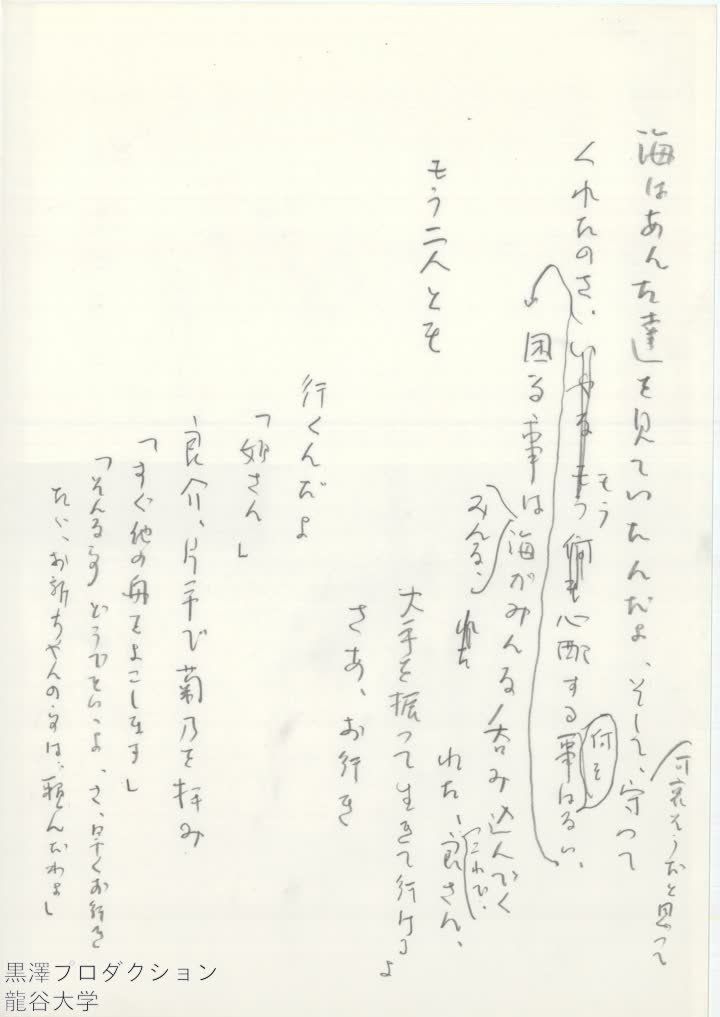 海はあんた達を見ていたんだよ、そして、守って
可哀そうだと思って
くれたのさ、いやなもう何も心配する事はない、
もう
何も
困る事は海がみんな呑み込んでく
みんな、
れた、良さん、
これで、
もう二人とも
大手を振って生きて行けるよ
さあ、お行き
行くんだよ
「姐さん」
良介、片手で菊乃を拝み
「すぐ他の舟をよこします」
「そんな事どうでもいゝよ、さ、早くお行き
たゞ、お新ちやんの事は、頼んだわよ」
黒澤プロダクション
龍谷大学